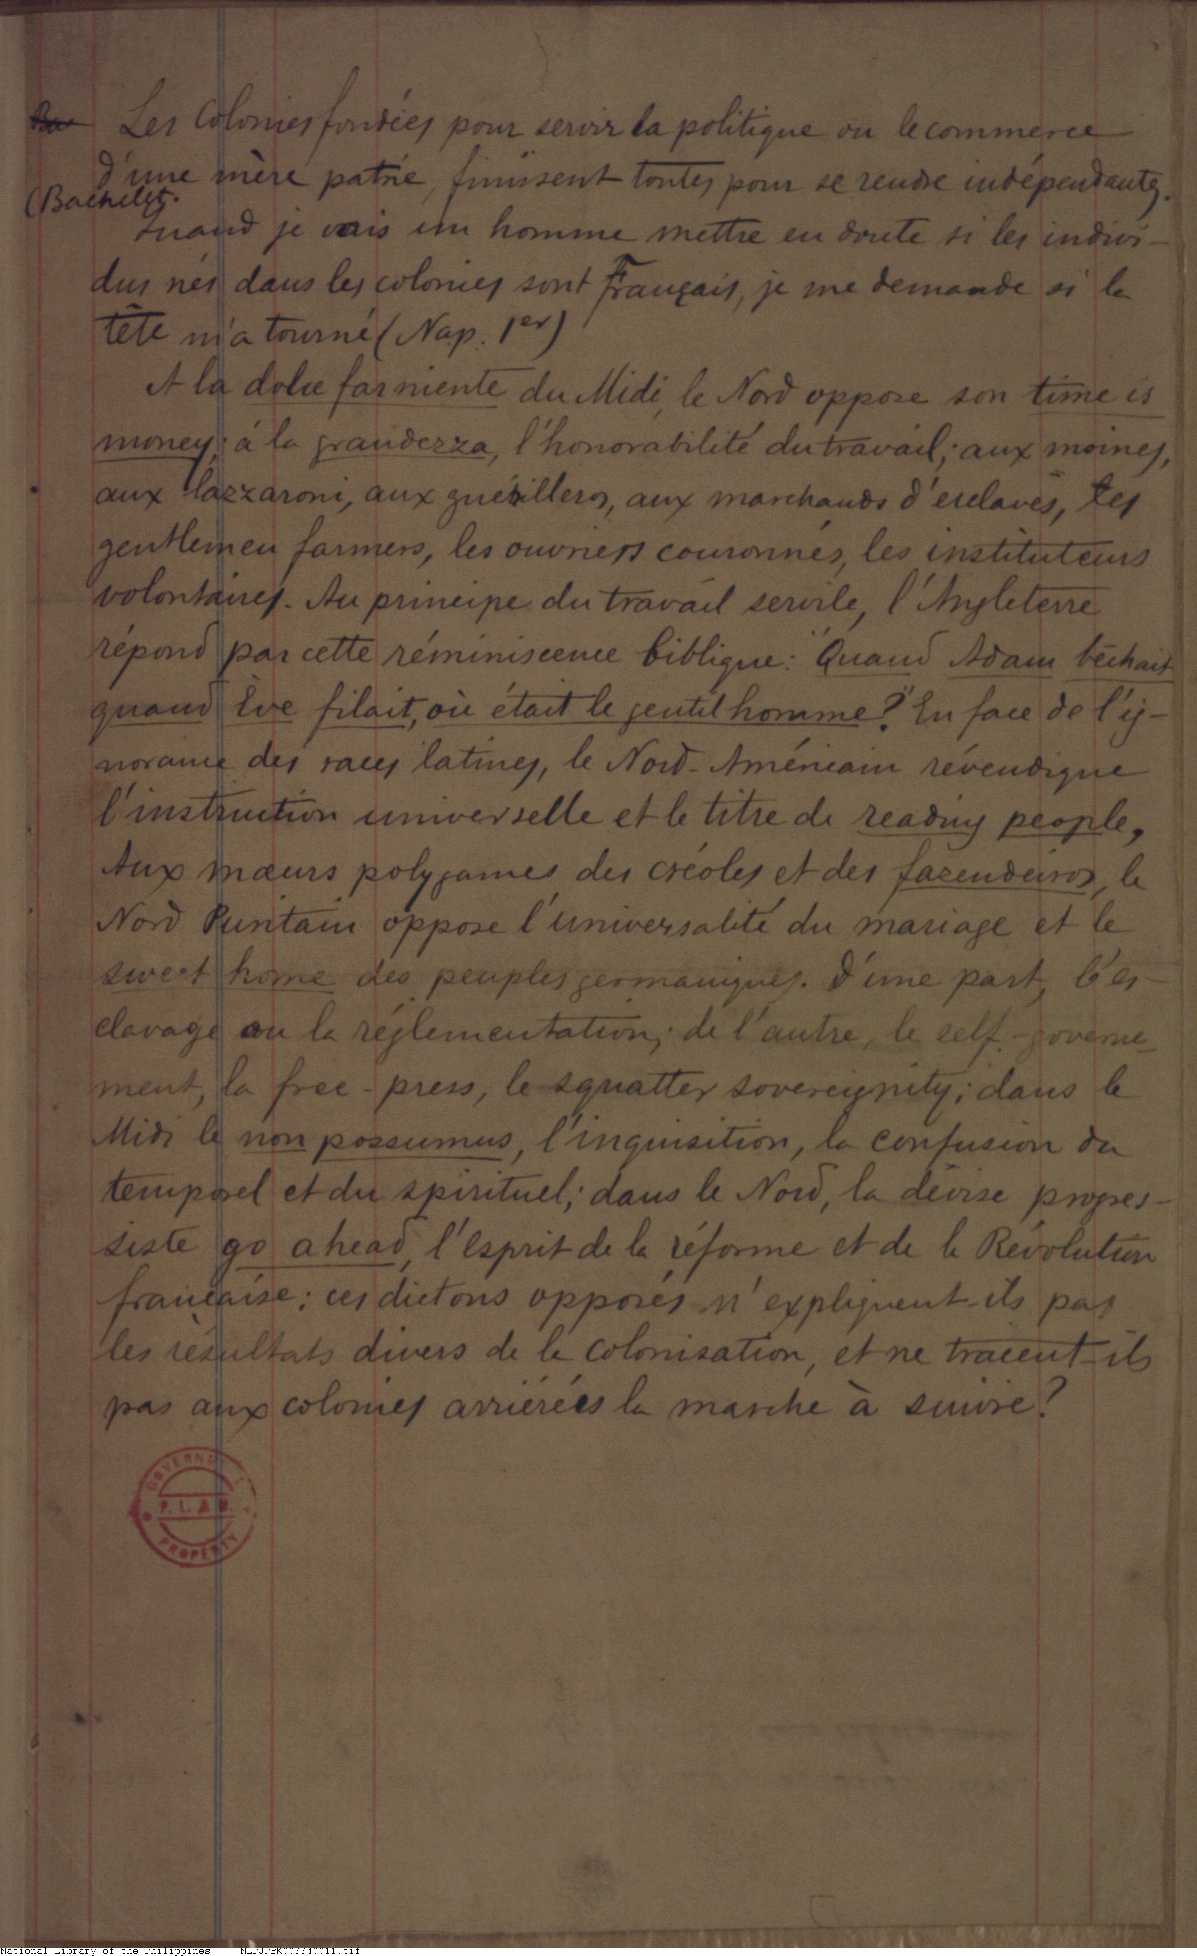 Les Colonies fondées pour servir la politique ou le commerce
d'une mère patrie, finissent toutes pour se rendre indépendantes.
(Bachelet.
Quand je vois un homme mettre en doute si les indivi-
dus nés dans les colonies sont Français, je me demande si la
tête m'a tourné (Nap. 1er)
A la dolce far niente du Midi, le Nord oppose son time is
money; à la grandezza, l'honorabilité du travail; aux moines,
aux lazzaroni, aux guérilleros, aux marchands d'esclaves, les
gentlemen farmers, les ouvriers couronnés, les instituteurs
volontaires. Au principe du travail servile, l'Angleterre
répond par cette réminiscence biblique: "Quand Adam bêchait
quand Ève filait, où était le gentilhomme?" En face de l'ig-
norance des races latines, le Nord-Américain révendique
l'instruction universelle et le titre de reading people,
Aux mœurs polygames des créoles et des fazendeiros, le
Nord Puritain oppose l'universalité du mariage et le
sweet home des peuples germaniques. D'une part, l'es-
clavage ou la réglementation; de l'autre, le self-governe-
ment, la free-press, le squatter sovereignity; dans le
Midi le non possumus, l'inquisition, la confusion du
temporel et du spirituel; dans le Nord, la dévise progres-
siste go ahead, l'esprit de la réforme et de la Révolution
française: ces dictons opposés n'expliquent-ils pas
les résultats divers de la colonisation, et ne tracent-ils
pas aux colonies arriérées la marche à suivre?
P. L. & M.
PROPERTY
National Library of the Philippines